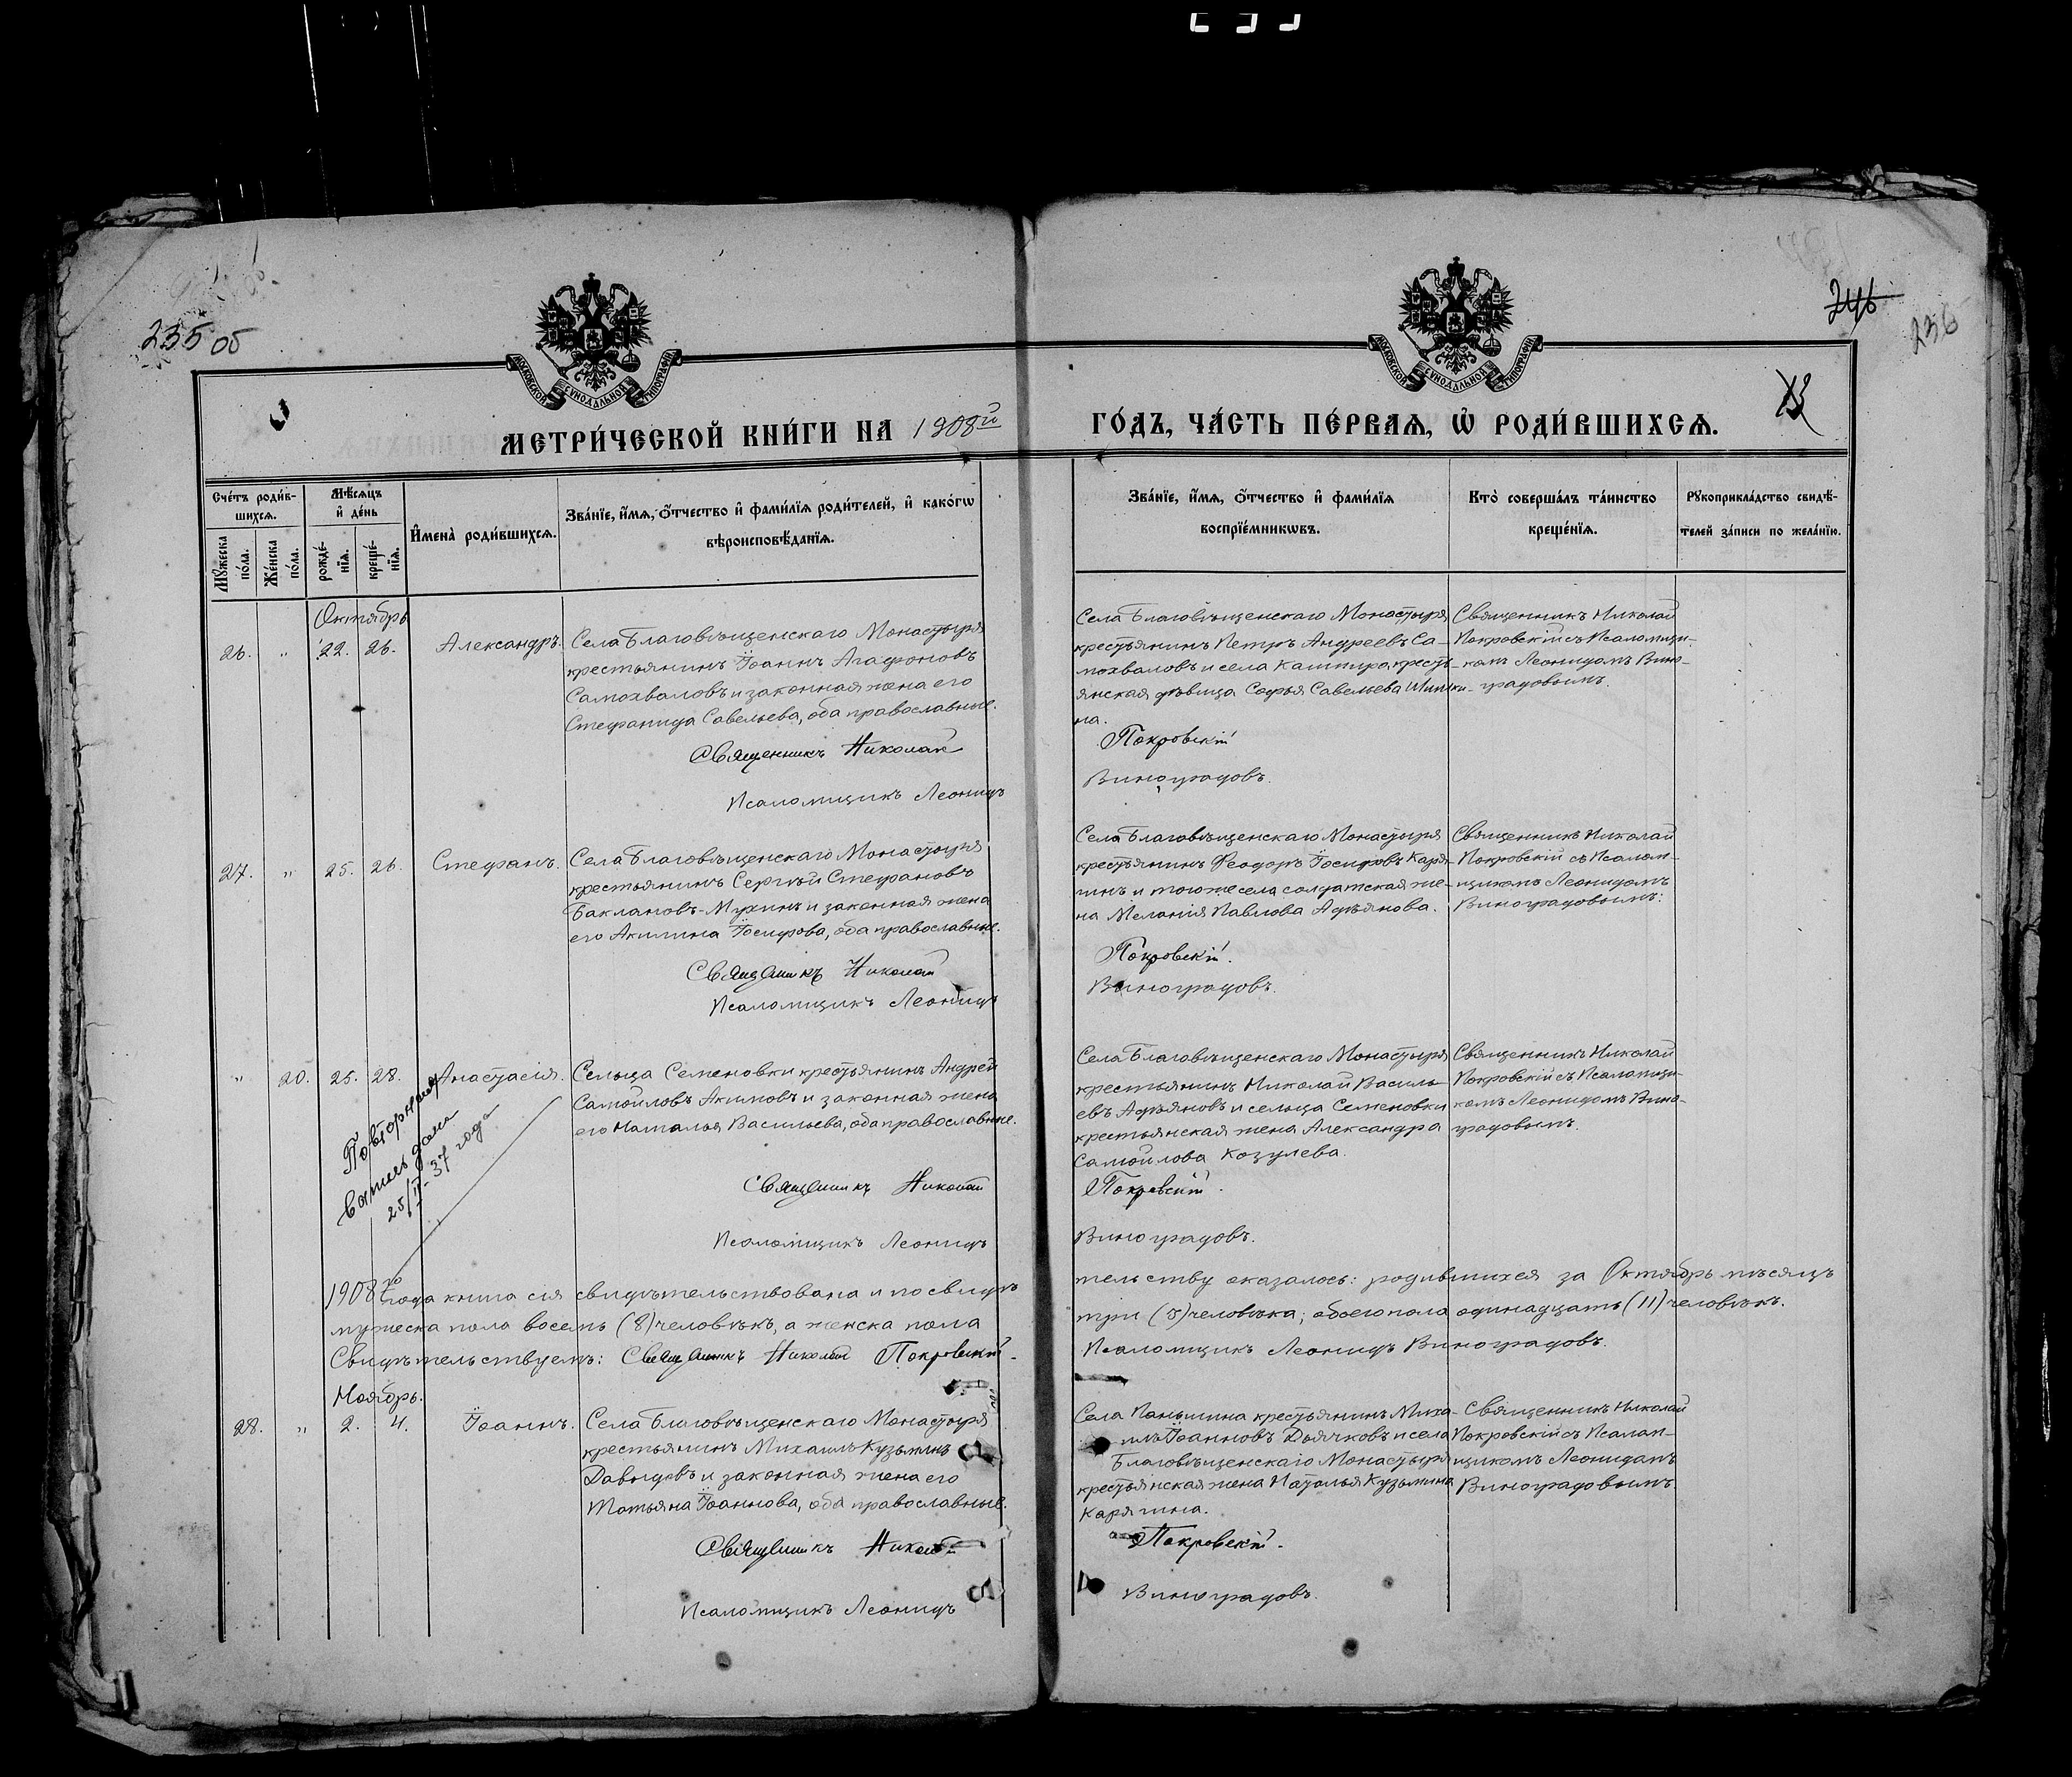 235 об
246
236
МОСКОВСКОЙ СѴНОДАЛЬНОЙ ТИПОГРАФІИ
МОСКОВСКОЙ СѴНОДАЛЬНОЙ ТИПОГРАФІИ
МЕТРИ́ЧЕСКОЙ КНИ́ГИ НА 1908й ГО́ДЪ, ЧА́СТЬ ПЕ́РВАѦ, Ѡ҆ РОДИ́ВШИХСѦ.
Сче́тъ роди́в-
шихсѧ.
Мѣ́сѧцъ
и҆ де́нь
И҆мена̀ роди́вшихсѧ.
Зва́нїе, и҆́мѧ, ѻ҆́тчество и҆ фами́лїѧ роди́телей, и҆ како́гѡ
вѣроисповѣ́данїѧ.
Мꙋ́жеска
по́ла.
Же́нска
по́ла.
рожде́-
нїѧ.
креще́-
нїѧ.
Зва́нїе, и҆́мѧ, ѻ҆́тчество и҆ фами́лїѧ
воспрїе́мникѡвъ.
Кто̀ соверша́лъ та́инство
креще́нїѧ.
Рꙋкоприкла́дство свидѣ́-
телей за́писи по жела́нїю.
Октябрь
26. " 22. 26. Александръ.
Села Благовѣщенскаго Монастыря
крестьянинъ Іоаннъ Агафоновъ
Самохваловъ и законная жена его
Стефанида Савельева, оба православные.
Священникъ Николай
Псаломщикъ Леонидъ
Села Благовѣщенскаго Монастыря
крестьянинъ Петръ Андреевъ Са-
мохваловъ и села Каштира кресть-
янская дѣвица Софья Савельева Шишки-
на.
Покровскій
Виноградовъ.
Священникъ Николай
Покровскій съ Псаломщи-
комъ Леонидомъ Вино-
градовымъ.
27. " 25. 26. Стефанъ.
Села Благовѣщенскаго Монастыря
крестьянинъ Сергѣй Стефановъ
Баклановъ-Мухинъ и законная жена
его Акилина Іосифова, оба православные.
Священникъ Николай
Псаломщикъ Леонидъ
Села Благовѣщенскаго Монастыря
крестьянинъ Феодоръ Іосифовъ Каря-
гинъ и тогоже села солдатская же-
на Меланія Павлова Адѣянова.
Покровскій.
Виноградовъ.
Священникъ Николай
Покровскій съ Псалом-
щикомъ Леонидомъ
Виноградовымъ.
" 20. 25. 28. Анастасія.
Сельца Семеновки крестьянинъ Андрей
Самойловъ Акимовъ и законная жена
его Наталья Васильева, оба православные.
Священникъ Николай
Псаломщикъ Леонидъ
Повторная
дана
25/II-37 года
Села Благовѣщенскаго Монастыря
крестьянинъ Николай Василь-
евъ Адѣяновъ и сельца Семеновки
крестьянская жена Александра
Самойлова Козулева.
Покровскій.
Виноградовъ.
Священникъ Николай
Покровскій съ Псаломщи-
комъ Леонидомъ Вино-
градовымъ.
1908го года книга сія свидѣтельствована и по свидѣ-
тельству оказалось: родившихся за Октябрь мѣсяцъ
мужеска пола восемь (8) человѣкъ, а женска пола
три (3) человѣка; обоего пола одинадцать (11) человѣкъ.
Свидѣтельствуемъ: Священникъ Николай Покровскій.
Псаломщикъ Леонидъ Виноградовъ.
Ноябрь.
28. " 2. 4. Іоаннъ.
Села Благовѣщенскаго Монастыря
крестьянинъ Михаилъ Кузьминъ
Давыдовъ и законная жена его
Татьяна Іоаннова, оба православные.
Священникъ Николай
Псаломщикъ Леонидъ
Села Паньшина крестьянинъ Миха-
илъ Іоанновъ Дьячковъ и села
Благовѣщенскаго Монастыря
крестьянская жена Наталья Кузьмина
Карягина.
Покровскій.
Виноградовъ.
Священникъ Николай
Покровскій съ Псалом-
щикомъ Леонидомъ
Виноградовымъ.